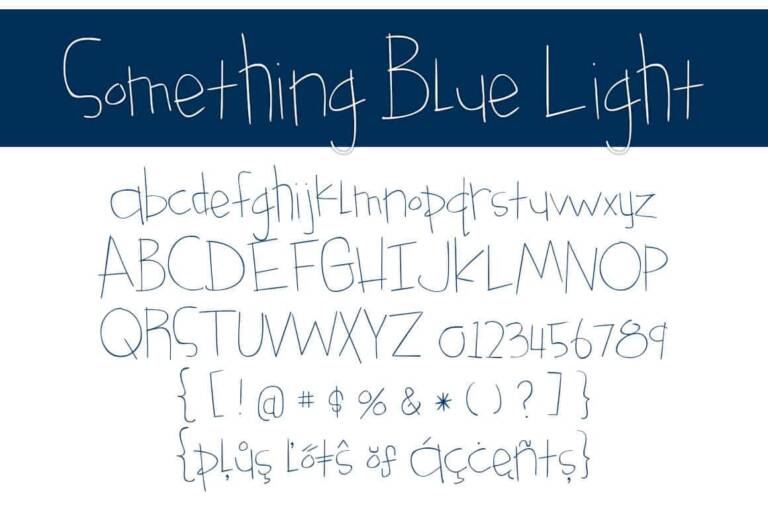 Something Blue Light
abcdefghijklmnopqrstuvwxyz
ABCDEFGHIJKLMNOP
QRSTUVWXYZ 0123456789
{[!@#$%&*()?]}
{pļůş ľőŧŝ ŏf áçċęñtș}